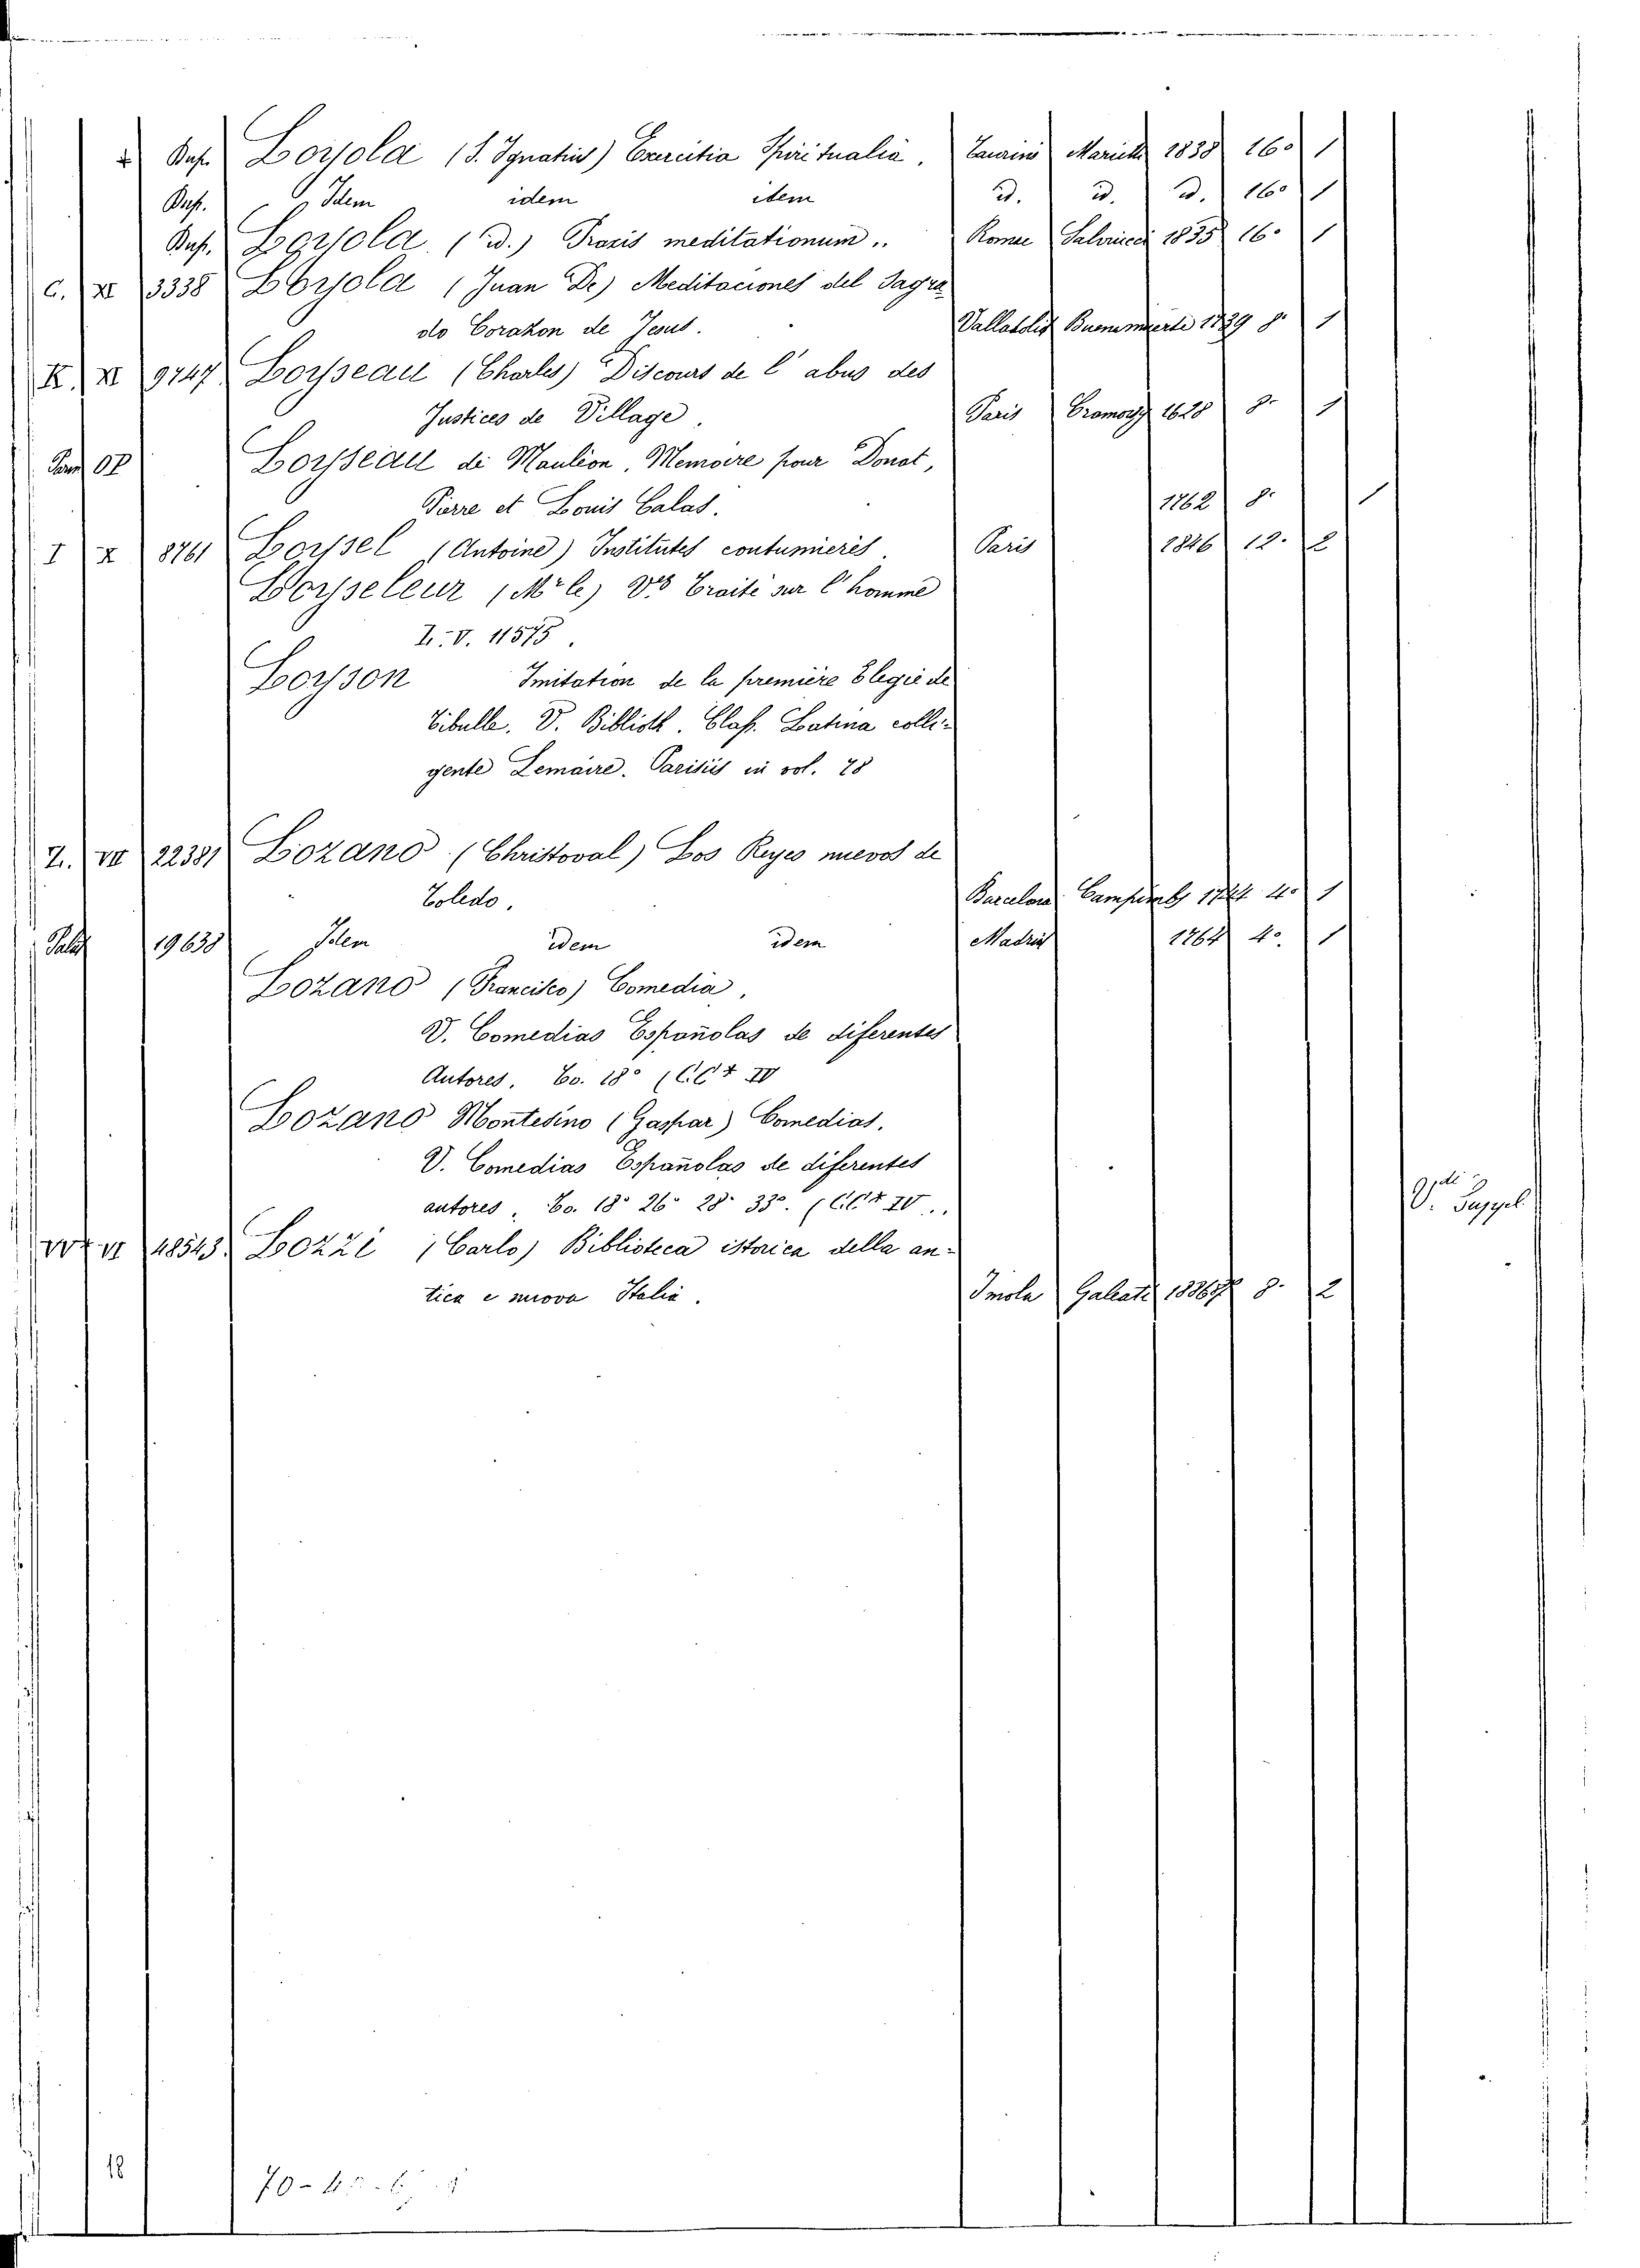 + Bas. Loyola (S. Ignatius) Exercitia Spiritualia. Taurini Marietti 1838 16° 1
Bas. Idem idem idem id. id. id. 16° 1
Bas. Loyola (id.) Praxis meditationum.. Romae Salviucci 1835 16° 1
C. XI 3338 Loyola (Juan De) Meditaciones del Sagra
do Corakon de Jesus. Vallatolid 8° 1
K. XI 9747 Loyseau (Charles) Discours de l'abus des
Justices de Village. Paris Cramoisy 1628 8° 1
Loyseau de Mauléon, Memoire pour Donat,
Pierre et Louis Calas. 1762 8° 1
I X 8761 Loysel (Antoine) Institutes contumierès. Paris 1846 12° 2
Loyseleur (Mr le) V° Traité sur l'homme
Z. V. 11575.
Loyson Imitation de la première Elegie de
Tibulle. V. Biblioth. Class. Latina colli-
gente Lemaire. Parisiis in vol. 78
Z. VII 22381 Lozano (Christoval) Los Reyes nuevos de
Toledo. Barcelona 1744 4° 1
Palat 19638 Idem idem idem Madrid 1764 4° 1
Lozano (Francisco) Comedia.
V. Comedias Españolas de diferentes
Autores. To. 18° (CC+ IV
Lozano Montesino (Gaspar) Comedias.
V. Comedias Españolas de diferentes
autores, To. 18° 26° 28° 33°. (CC+ IV..
VI 48543. Lozzi (Carlo) Biblioteca istorica della an-
tica e nuova Italia. Imola Galeati 1886 8° 2
V.
18
70 -